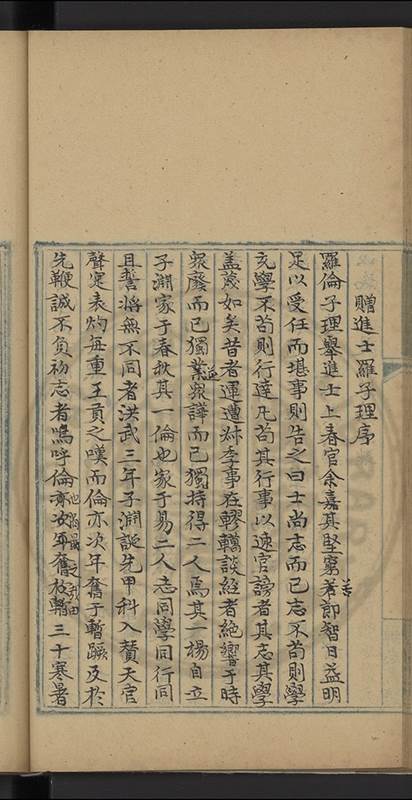 贈進士羅子理序
羅倫子理舉進士上春官余嘉其堅窮著苦節智日益明
足以受任而堪事則告之曰士尚志而已志不苟則學
文學不苟則行達凡苟其行事以速官謗者其志其學
盖蔑如矣昔者運遭叔季事在轇轕談經者絶響于時
眾廢而已獨業眾譁而已獨持得二人焉其一楊自立
子淵家于春秋其一倫也家于易二人志同學同行同
且誓將無不同者洪武三年子淵誕先甲科入贊天官
聲寔表灼每重王貢之嘆而倫亦次年奮于暫蹶及於
先鞭誠不負初志者嗚呼倫亦次年奮於三十寒暑